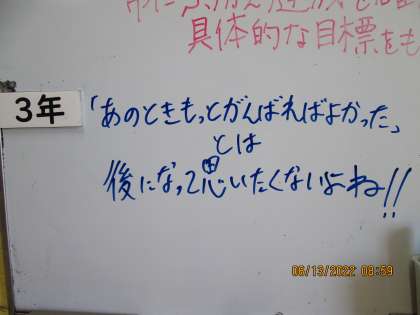 具体的な目標をも
3年
「あのときもっとがんばればよかった」
とは
後になって思いたくないよね!!
06/13/2022 08:59